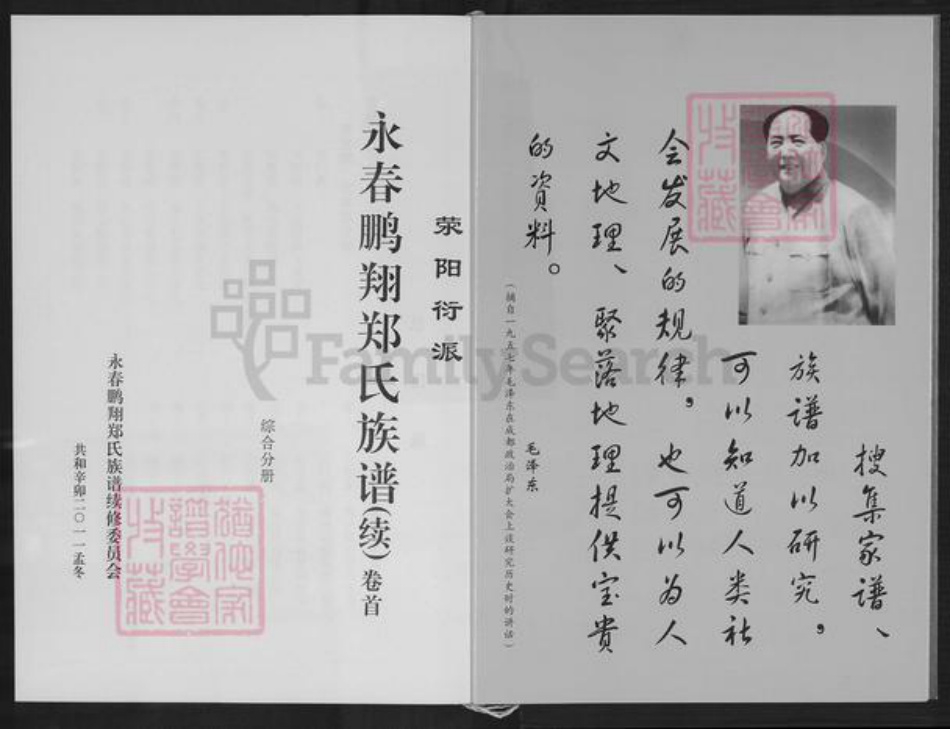 搜集家谱、
族谱加以研究，
可以知道人类社
会发展的规律，也可以为人
文地理、聚落地理提供宝贵
的资料。
毛泽东
（摘自一九五七年毛泽东在成都政治局扩大会上谈研究历史时的讲话）
荥阳衍派
永春鹏翔郑氏族谱（续）卷首
综合分册
永春鹏翔郑氏族谱续修委员会
共和辛卯二〇一一孟冬
FamilySearch
譜學會
收藏